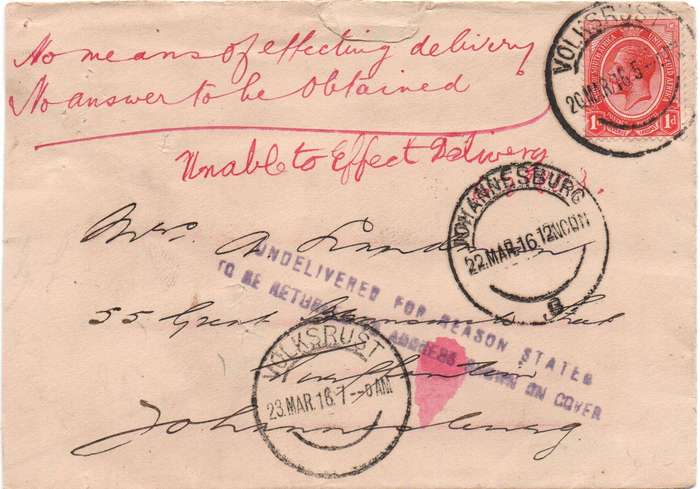 No means of effecting delivery
No answer to be obtained
Unable to Effect Delivery
VOLKSRUST
20.MAR.16.5
SOUTH AFRICA
1d 1d
JOHANNESBURG
22.MAR.16.12NOON
8
Mrs. A
UNDELIVERED FOR REASON STATED
TO BE RETURNED TO ADDRESS SHOWN ON COVER
55 Great Street
VOLKSRUST
23.MAR.16.7--0AM
Johannesburg